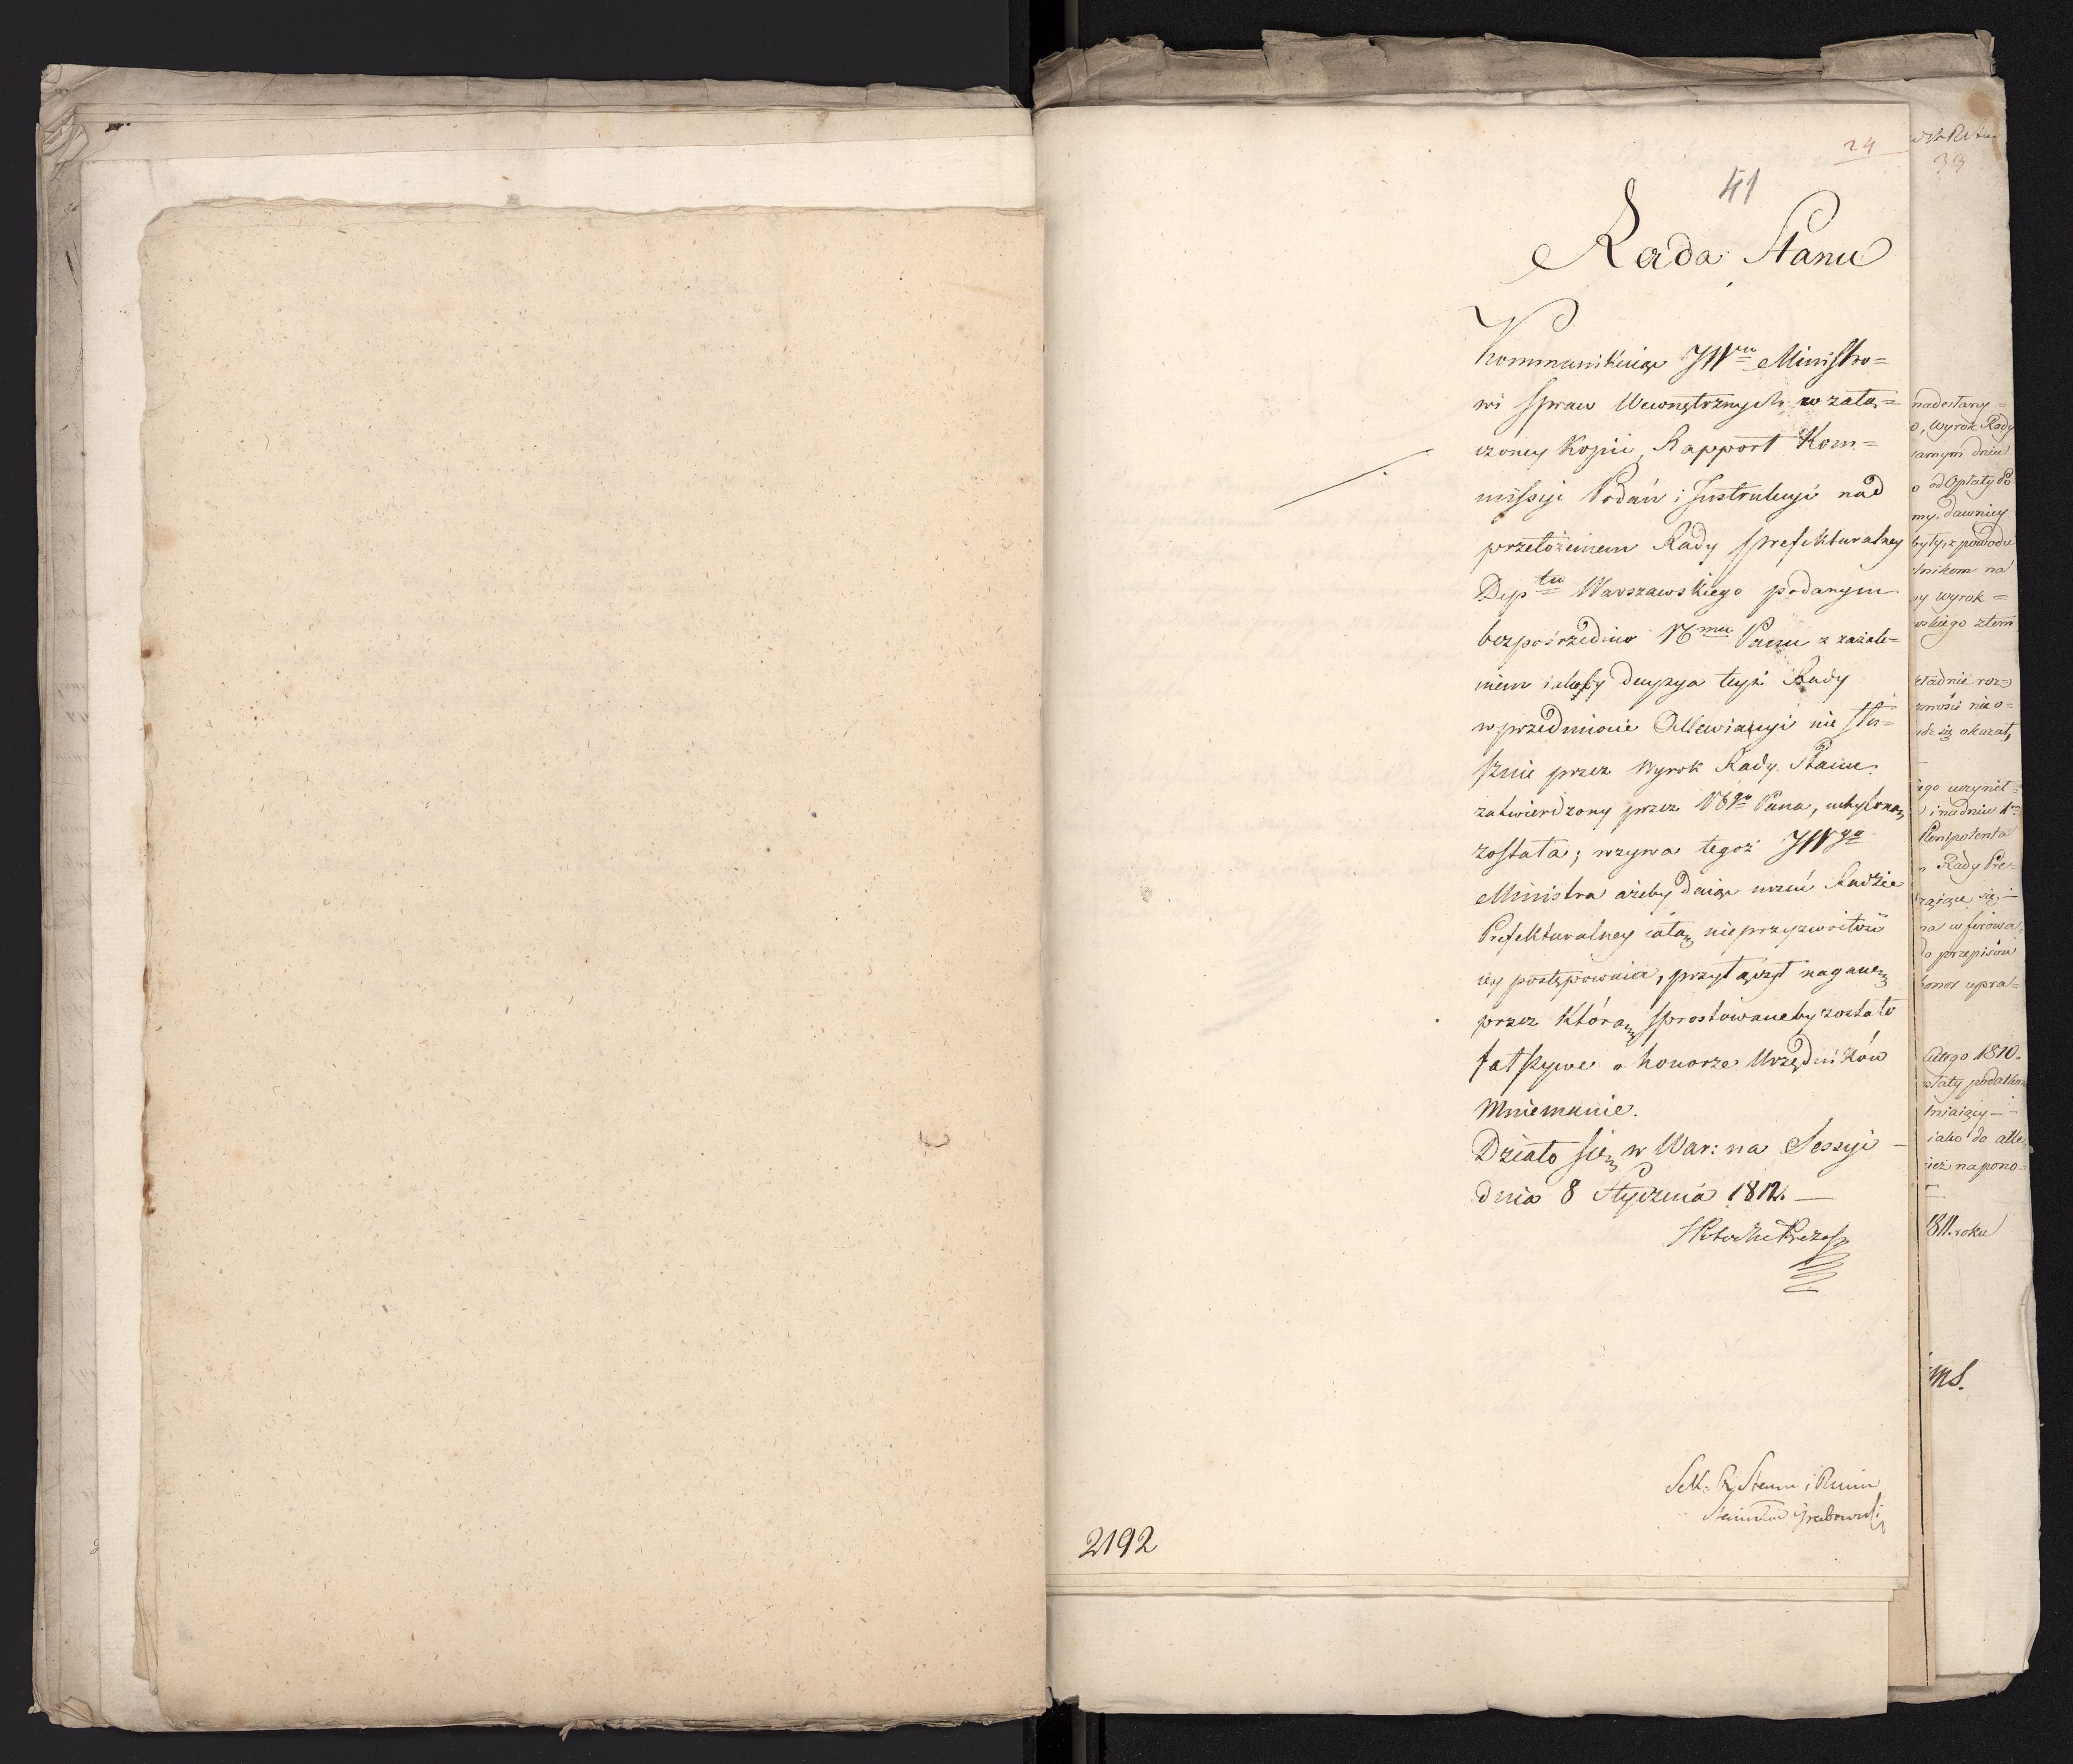 24
41
Rada Stanu
Kommunikuiąc JWmu Ministro=
wi Spraw Wewnętrznych w załą=
czoney Kopii, Rapport Kom=
missyi Podań i Instrukcyi nad
przełożeniem Rady Prefekturalney
Deptu Warszawskiego podanym
bezpośrzednio NCmu Panu z zażale=
niem iakoby decyzya teyże Rady
w przedmiocie Allewiacyi nie słu=
sznie przez Wyrok Rady Stanu
zatwierdzony przez NCgo Pana, uchyloną
została; wzywa tegoż JWgo
Ministra ażeby daiąc uczuć Radzie
Prefekturalney całą nieprzyzwoitość
iey postępowania, przyłączył naganę
przez którą sprostowane by zostało
fałszywe o honorze Urzędników
Mniemanie.
Działo się w War: na Sessyi —
dnia 8 Stycznia 1812. —
S Potocki Prezes
Sek. Ry Stanu i Ministrów
Grabowski
2192
33
nadesłany=
o, Wyrok Rady
samym dniu
o od Opłaty Po
my, dawniey
były, z powodu
lnikom na
ny wyrok =
wskiego z tem
kładnie roz=
zności nie o=
edz się okazał,
ego uczynił=
i na dniu 1
Plenipotenta
n Rady Pre=
zaiące się. —
na w ferowa=
do przepisów
honor upra=
Lutego 1810.
płaty podatkow
lniaiący —
iako do alle
ież na pono=
1811. roku
ms.